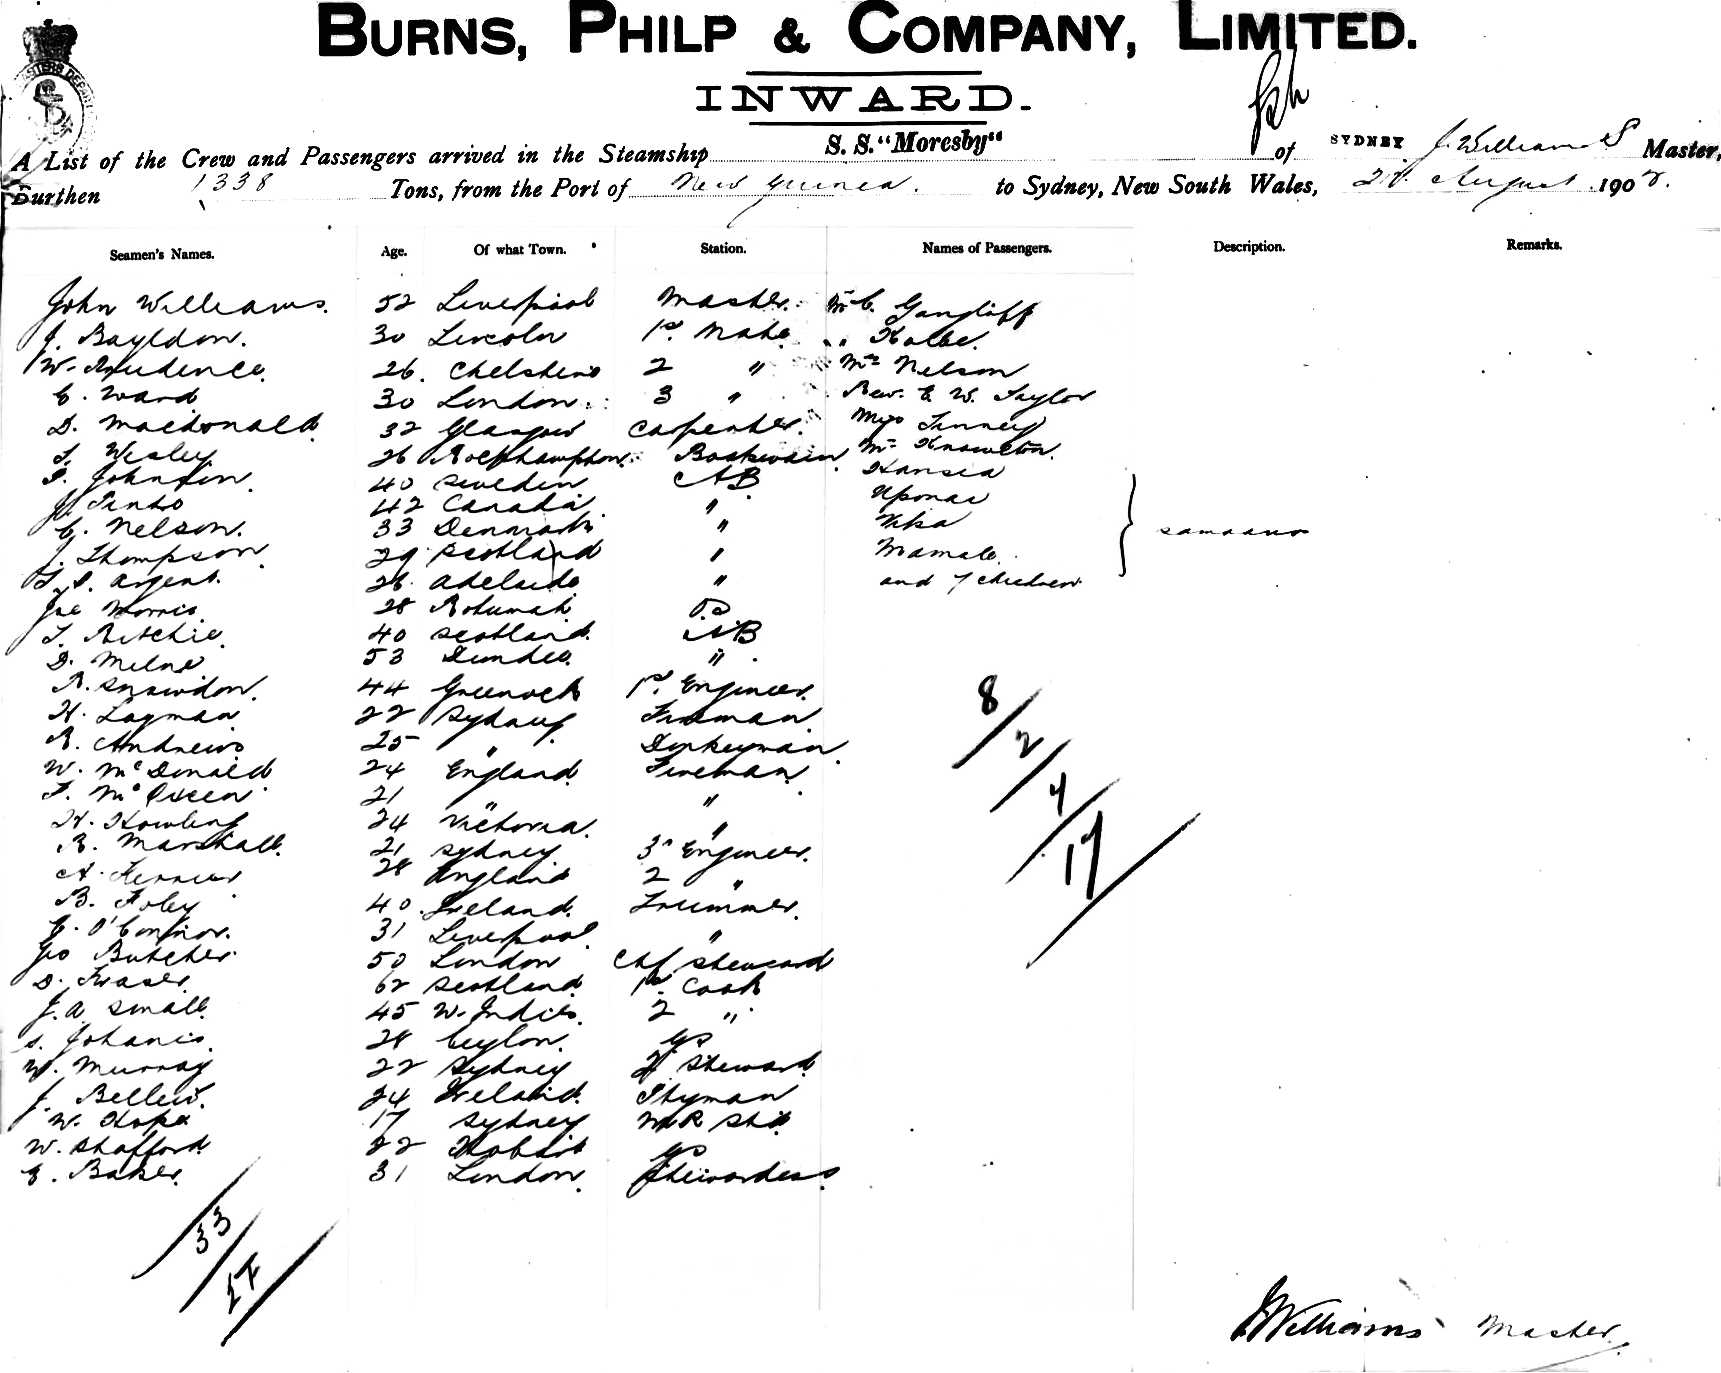 BURNS, PHILP & COMPANY, LIMITED.
INWARD.
A List of the Crew and Passengers arrived in the Steamship S. S. "Moresby" of SYDNEY J. Williams Master,
Burthen 1338 Tons, from the Port of New Guinea. to Sydney, New South Wales, August 190
Seamen's Names. Age. Of what Town. Station. Names of Passengers. Description. Remarks.
John Williams. 52 Liverpool Master. Mr C. Gangliff
J. Bayldon. 30 Lincoln 1st Mate " Kolbe.
W. Prudence. 26. 2 " Mrs Nelson
C. Ward 30 London 3 " Rev. E. W. Taylor
D. Macdonald 32 Glasgow Carpenter. Miss Tinney
T. Wesley 26 Rockhampton. Boatswain Mr Knowlton.
Johnson. 40 Sweden AB. Hansea
J. 42 Canada "
C. Nelson. 33 Denmark " samoans
J. Thompson 29 Scotland " Mamale.
Argent. 26. Adelaide " and 7 children
Joe Morris. 28 Rotumah O.S.
T. Ritchie. 40 Scotland. AB
D. Milne 53 Dundee. "
R. Snowdon. 44 Greenock 1st Engineer.
H. Layman 22 Sydney Fireman
R. Andrews 25 " Donkeyman.
W. McDonald 24 England Fireman.
F. McQueen 21 " "
H. Howling 24 Victoria. "
R. Marshall. 21 Sydney. 3rd Engineer.
A. 28 England 2 "
B. Foley 40. Ireland. Trimmer.
C. O'Connor. 31 Liverpool. "
Geo Butcher 50 London Chf Steward
D. Fraser. 62 Scotland. 1st Cook
J. A. Small. 45 W. Indies. 2 "
S. Johanis. 28 Ceylon. GS
W. Murray 22 Sydney 2d Steward
J. Bellew. 24 Ireland. Ptyman
W. Hope 17 Sydney M R Std
W. Shafford 22 Hobart GS
E. Baker. 31 London. Stewardess.
8/2/4/17
33/
J Williams Master.